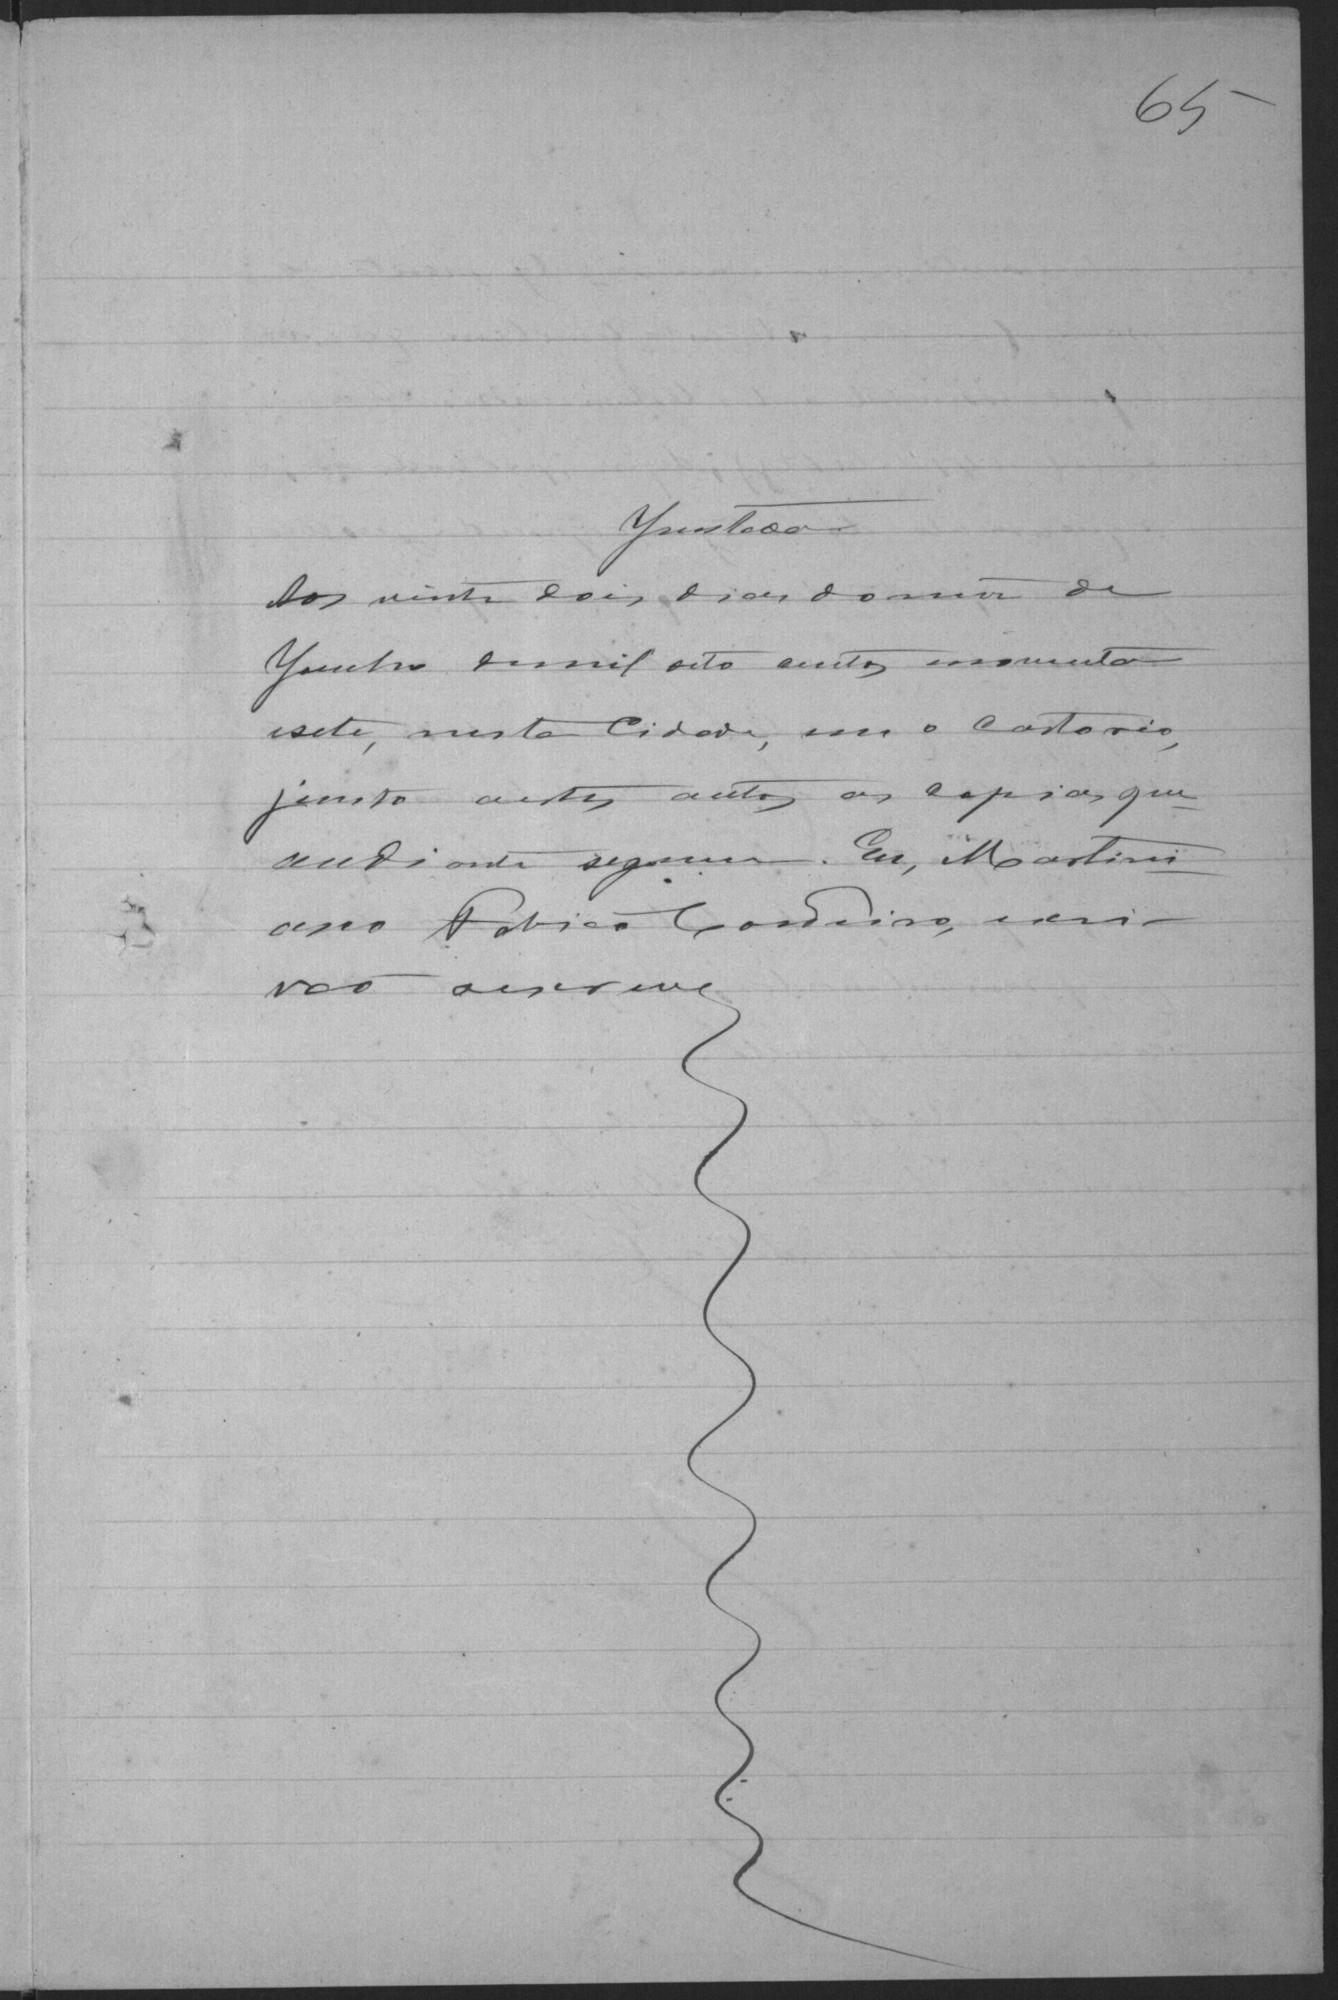 65
Juntada
Aos vinte dois dias do mez de
Junho de mil oito centos noventa
e sete, nesta Cidade, em o Cartorio,
junto a estes autos as copias que
ao diante seguem. Eu, Martini
ano Fabicio Cordeiro, escri-
vaõ o escrevi